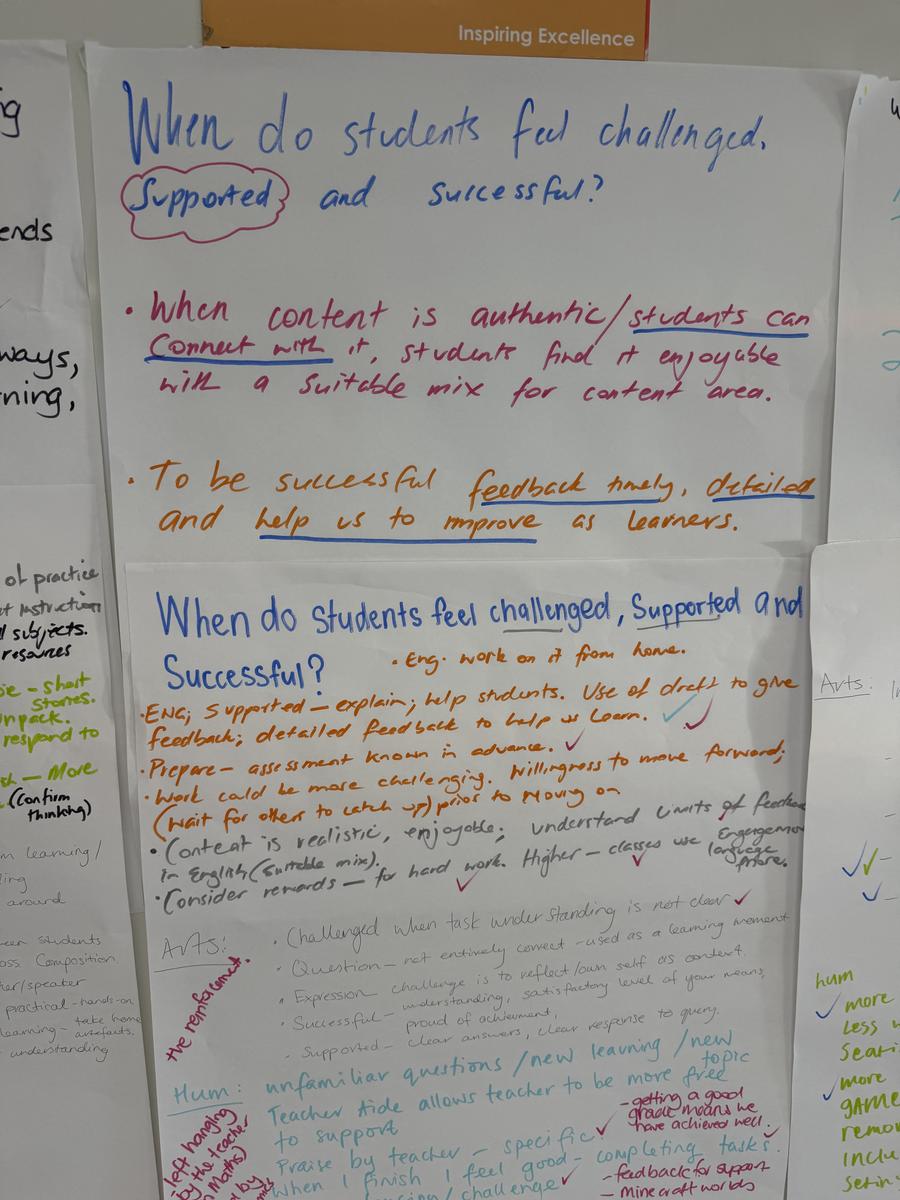 Inspiring Excellence
When do students feel challenged,
Supported and successful?
• When content is authentic/students can
connect with it, students find it enjoyable
with a suitable mix for content area.
• To be successful feedback timely, detailed
and help us to improve as learners.
When do students feel challenged, Supported and
Successful?
• Eng. work on it from home.
• ENG; Supported – explain; help students. Use of draft to give
feedback; detailed feedback to help us learn. ✓ ✓
• Prepare – assessment known in advance. ✓
• Work could be more challenging. Willingness to move forward;
(wait for others to catch up) prior to moving on
• Content is realistic, enjoyable; understand limits of feedback
in English (suitable mix).
• Consider rewards – for hard work. Higher – classes use Engagement
language
more.
Arts:
• Challenged when task understanding is not clear ✓
• Question – not entirely correct – used as a learning moment
• Expression challenge is to reflect/own self as context.
• Successful – understanding, satisfactory level of your means,
proud of achievment,
• Supported – clear answers, clear response to query.
the reinforcement.
Hum: unfamiliar questions /new learning /new
topic
Teacher Aide allows teacher to be more free
to support
Praise by teacher – specific ✓
When I finish I feel good – completing tasks.
/challenge ✓
– getting a good
grade means we
have achieved well.
– feedback for support
– Minecraft worlds
left hanging
by the teacher
Maths)
by
ends
ways,
of practice
Instruction
subjects.
resources
– short
stories.
unpack.
respond to
– More
(confirm
thinking)
learning/
around
students
Composition
/speaker
practical – hands-on
learning – take home
artefacts.
understanding
Arts:
hum
✓ more
Less
✓ more